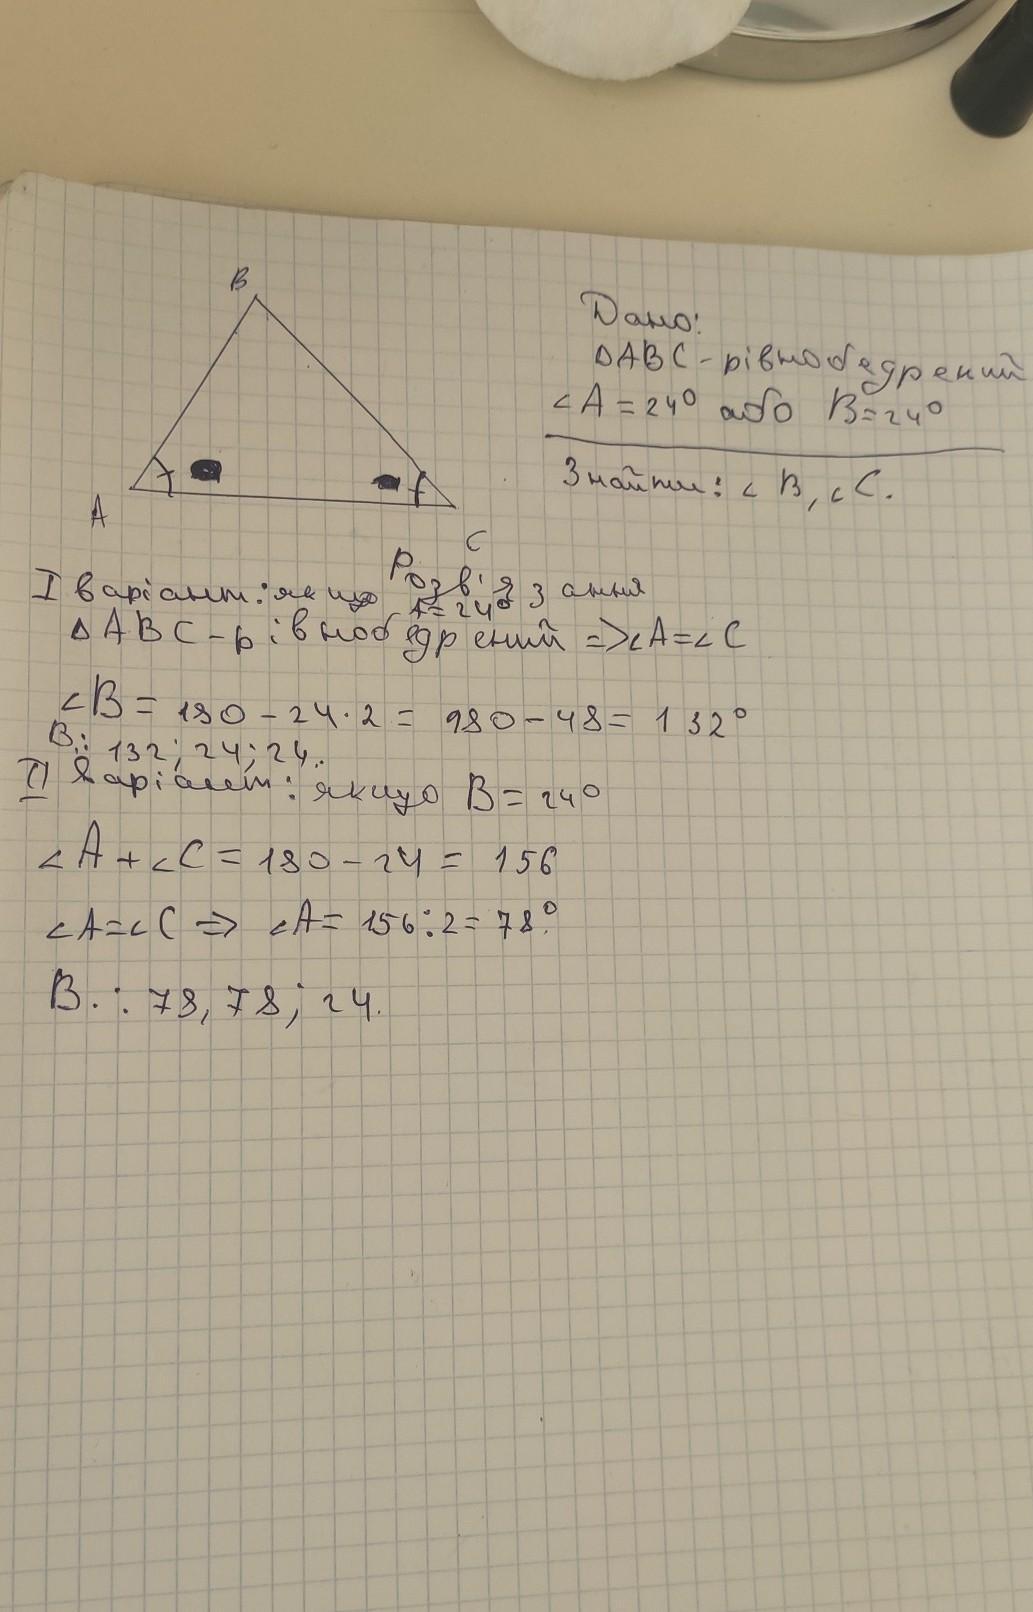 B
A
C
Дано:
△ABC - рівнобедрений
∠A = 24° або B = 24°
Знайти: ∠B, ∠C.
Розв'язання
I варіант: якщо A = 24°
△ABC - рівнобедрений => ∠A = ∠C
∠B = 180 - 24 · 2 = 180 - 48 = 132°
В.: 132; 24; 24.
II Варіант: якщо B = 24°
∠A + ∠C = 180 - 24 = 156
∠A = ∠C => ∠A = 156 : 2 = 78°.
В.: 78, 78; 24.